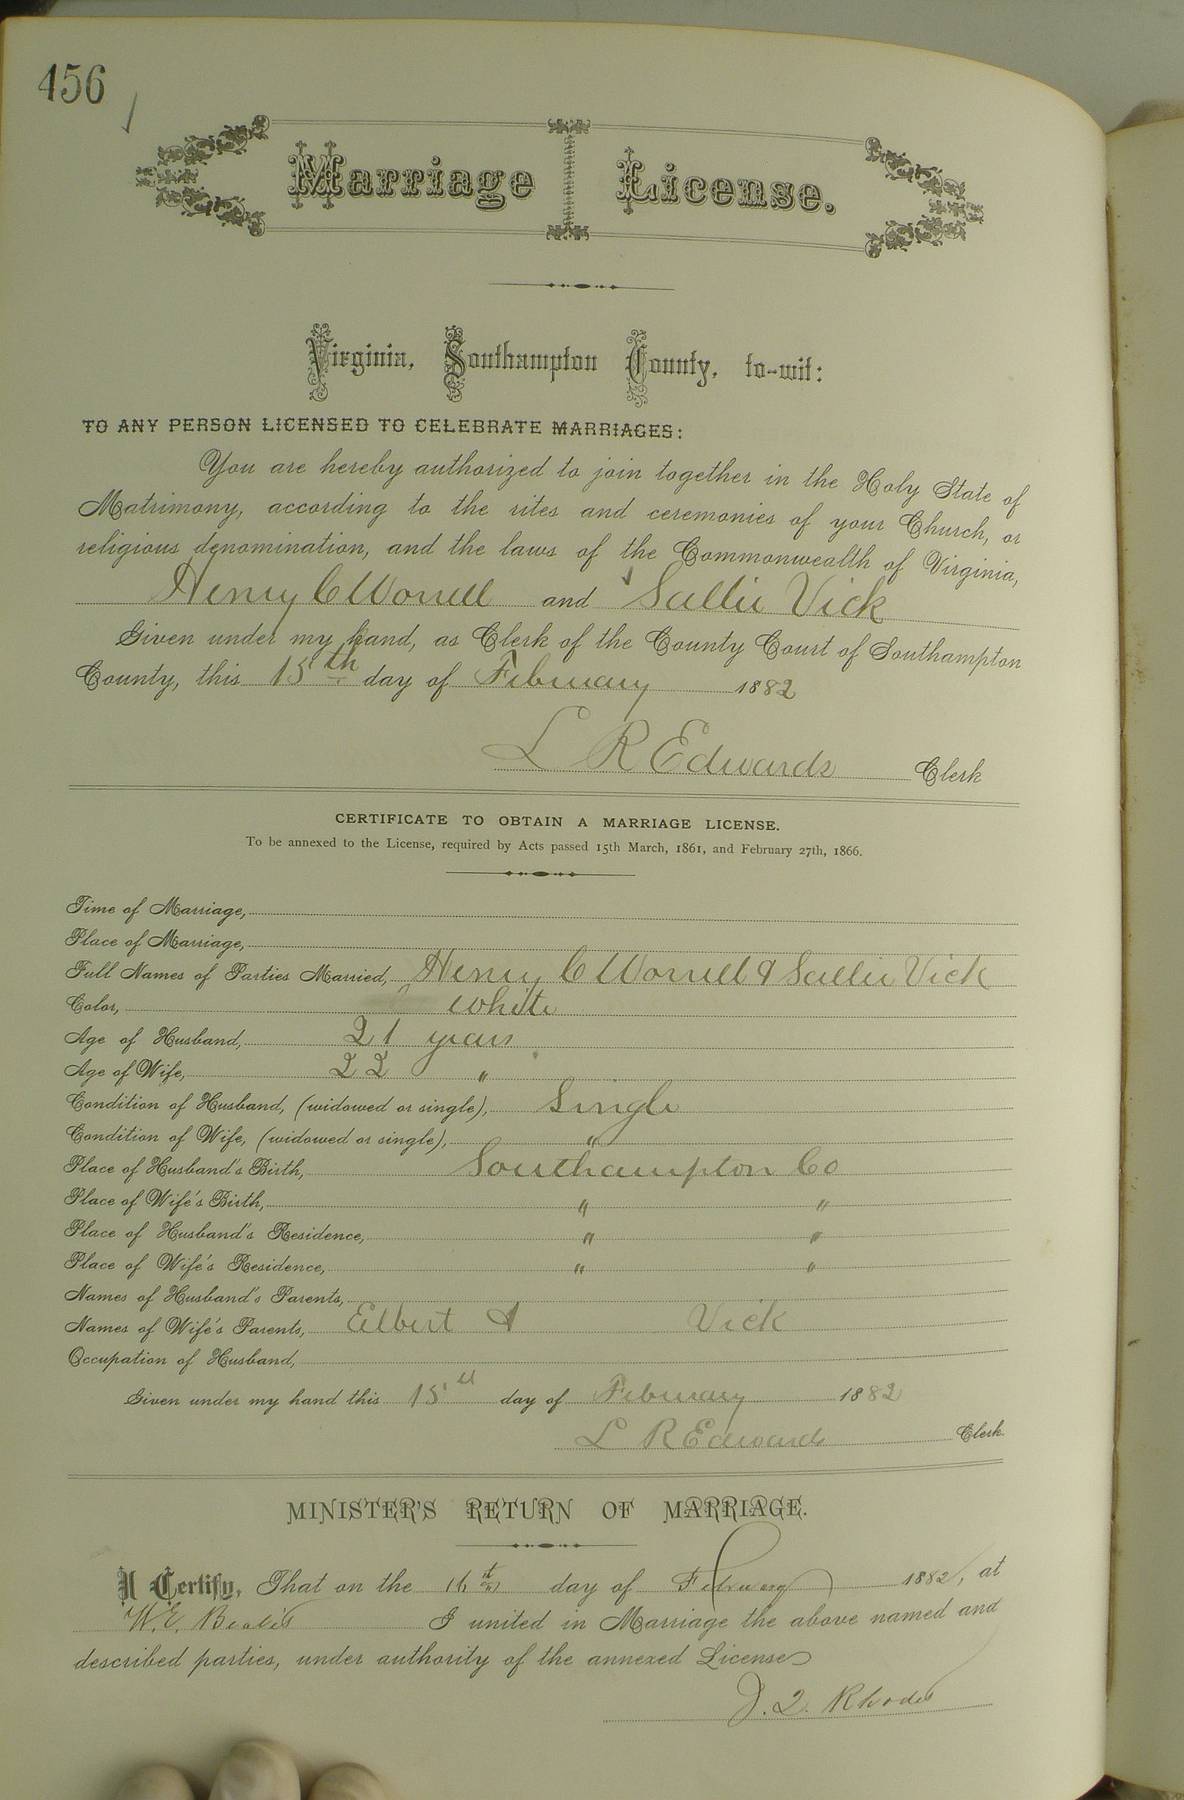 456
Marriage License.
Virginia, Southampton County, to-wit:
TO ANY PERSON LICENSED TO CELEBRATE MARRIAGES:
You are hereby authorized to join together in the Holy State of
Matrimony, according to the rites and ceremonies of your Church, or
religious denomination, and the laws of the Commonwealth of Virginia,
Henry C Worrell and Sallie Vick
Given under my hand, as Clerk of the County Court of Southampton
County, this 15th day of February 1882
L R Edwards Clerk
CERTIFICATE TO OBTAIN A MARRIAGE LICENSE.
To be annexed to the License, required by Acts passed 15th March, 1861, and February 27th, 1866.
Time of Marriage,
Place of Marriage,
Full Names of Parties Married, Henry C Worrell & Sallie Vick
Color, White
Age of Husband, 21 years
Age of Wife, 22 "
Condition of Husband, (widowed or single), Single
Condition of Wife, (widowed or single), "
Place of Husband's Birth, Southampton Co
Place of Wife's Birth, " "
Place of Husband's Residence, " "
Place of Wife's Residence, " "
Names of Husband's Parents,
Names of Wife's Parents, Elbert & Vick
Occupation of Husband,
Given under my hand this 15th day of February 1882
L R Edwards Clerk
MINISTER'S RETURN OF MARRIAGE.
I Certify, That on the 16th day of February 1882, at
W. E. Beale's I united in Marriage the above named and
described parties, under authority of the annexed License
Rhodes